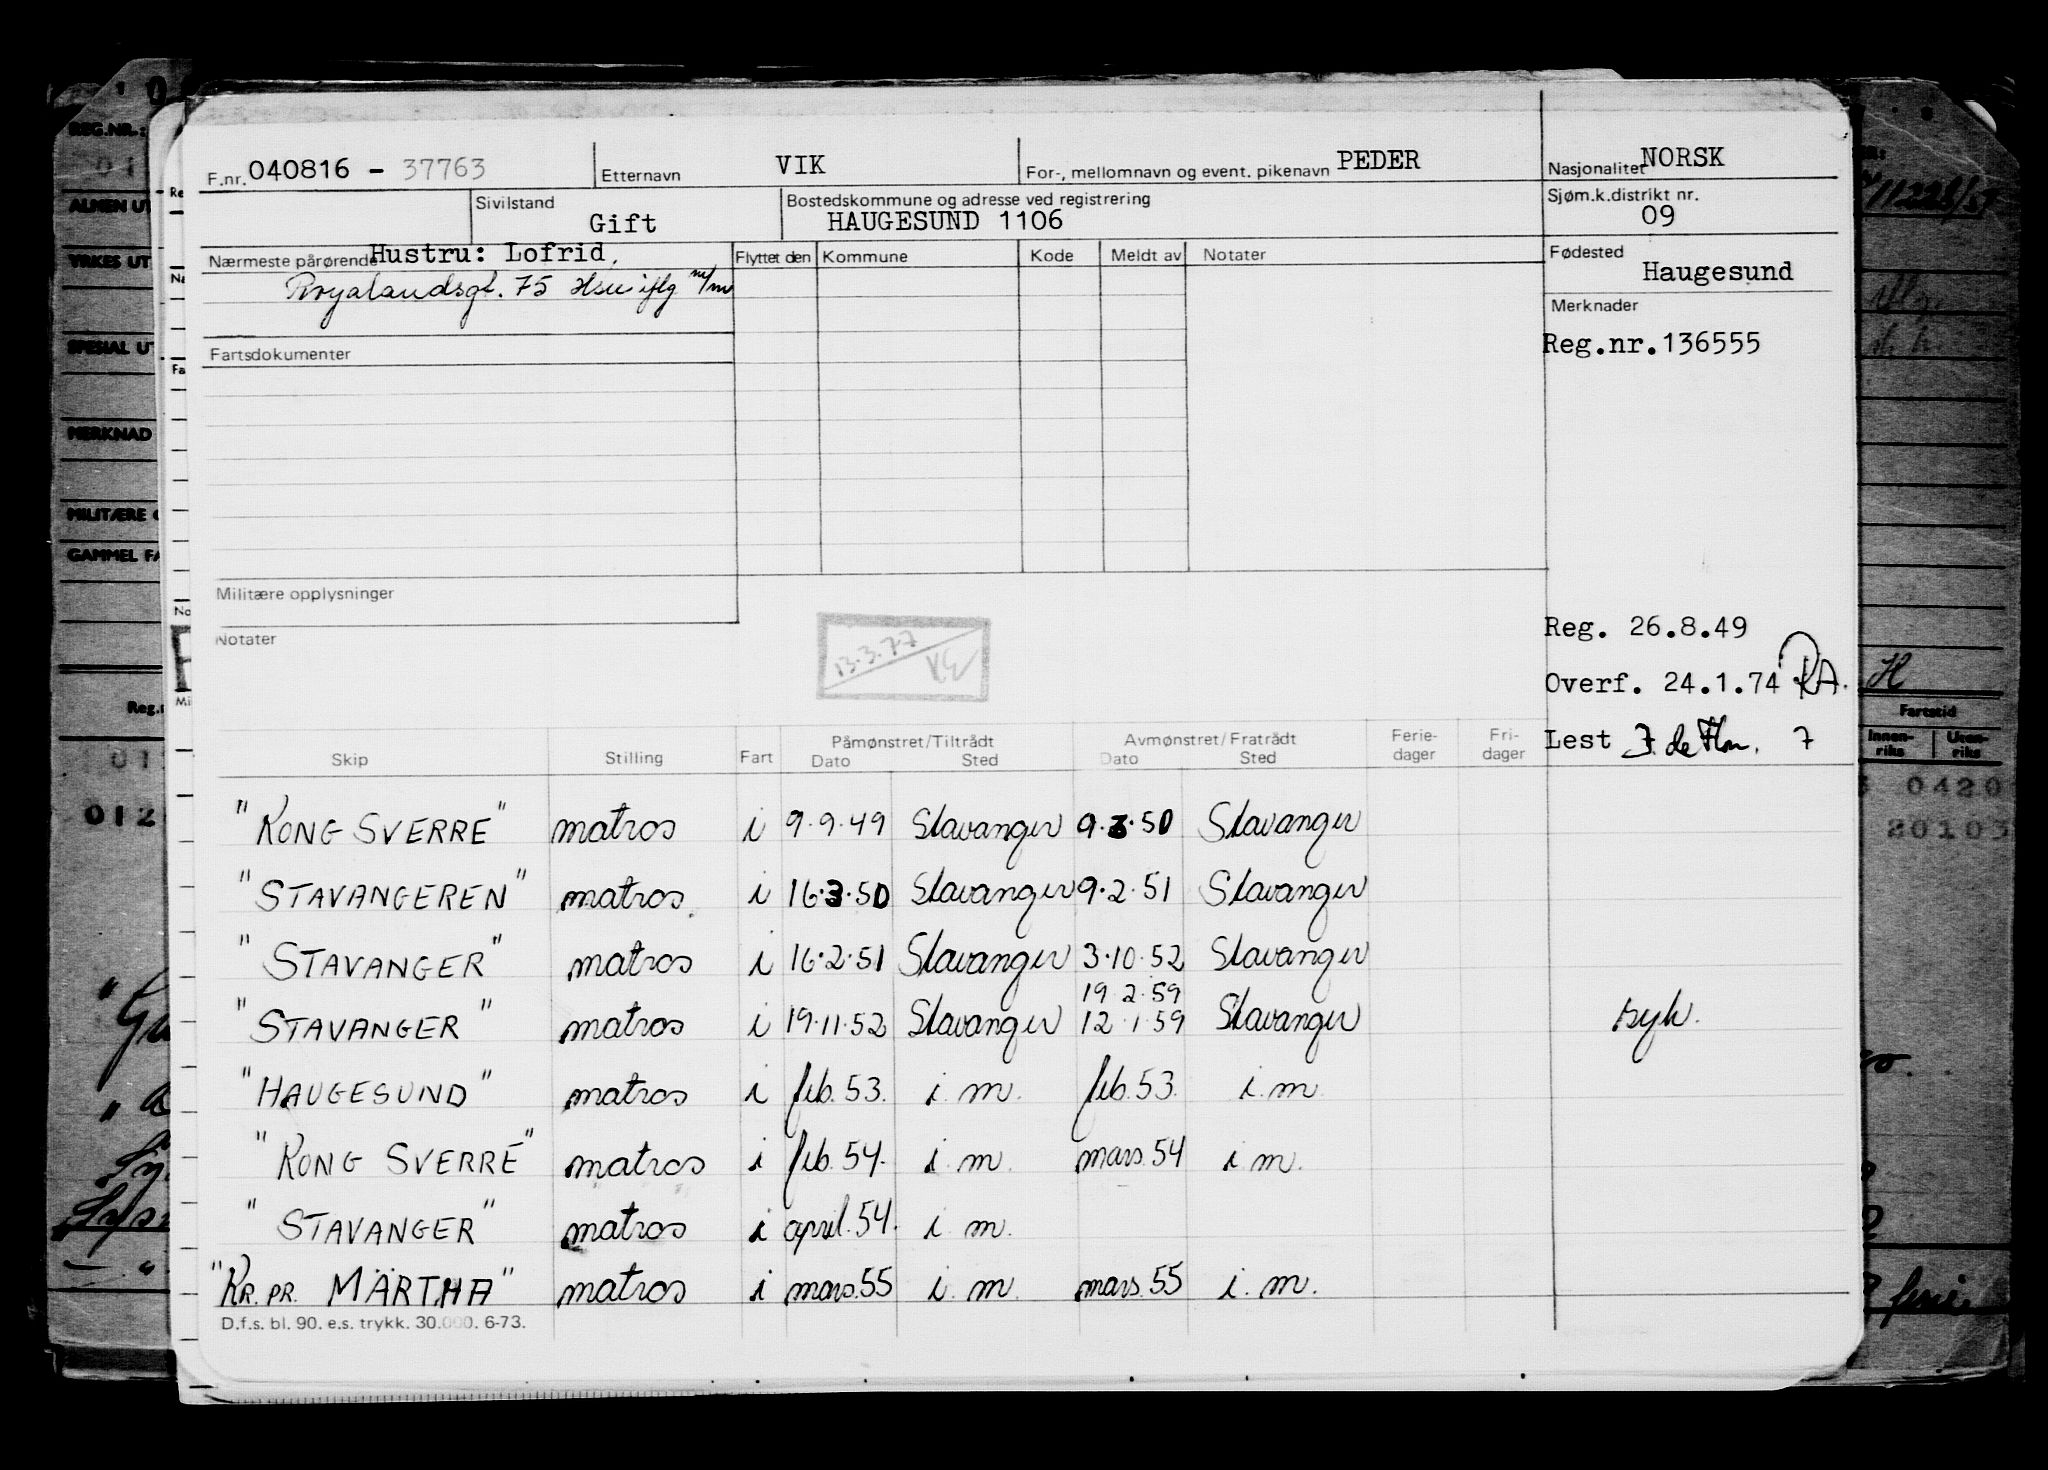 F.nr. 040816 - 37763 Etternavn VIK For-, mellomnavn og event. pikenavn PEDER Nasjonalitet NORSK
Sivilstand Gift Bostedskommune og adresse ved registrering HAUGESUND 1106 Sjøm.k.distrikt nr. 09
Nærmeste pårørende Hustru: Lofrid, Flyttet den Kommune Kode Meldt av Notater Fødested Haugesund
75
Merknader
Reg.nr.136555
Fartsdokumenter
Militære opplysninger
Notater
13.3.77
Reg. 26.8.49
Overf. 24.1.74 RA.
Lest 7
Skip Stilling Fart Påmønstret/Tiltrådt Dato Sted Avmønstret/Fratrådt Dato Sted Ferie-dager Fri-dager
"KONG SVERRE" matros i 9.9.49 Stavanger 9.3.50 Stavanger
"STAVANGEREN" matros. i 16.3.50 Stavanger 9.2.51 Stavanger
"STAVANGER" matros i 16.2.51 Stavanger 3.10.52 Stavanger
19.2.59
"STAVANGER" matros i 19.11.52 Stavanger 12.1.59 Stavanger syk.
"HAUGESUND" matros i feb.53. i.m. feb.53. i.m.
"KONG SVERRE" matros i feb.54. i.m. mars.54 i.m.
"STAVANGER" matros i april.54. i.m.
"KR. PR. MÄRTHA" matros i mars.55 i.m. mars.55 i.m.
D.f.s. bl. 90. e.s. trykk. 30.000. 6-73.
REG.NR.:
MERKNAD
H
Fartstid
Innen-riks Uten-riks
012
0420